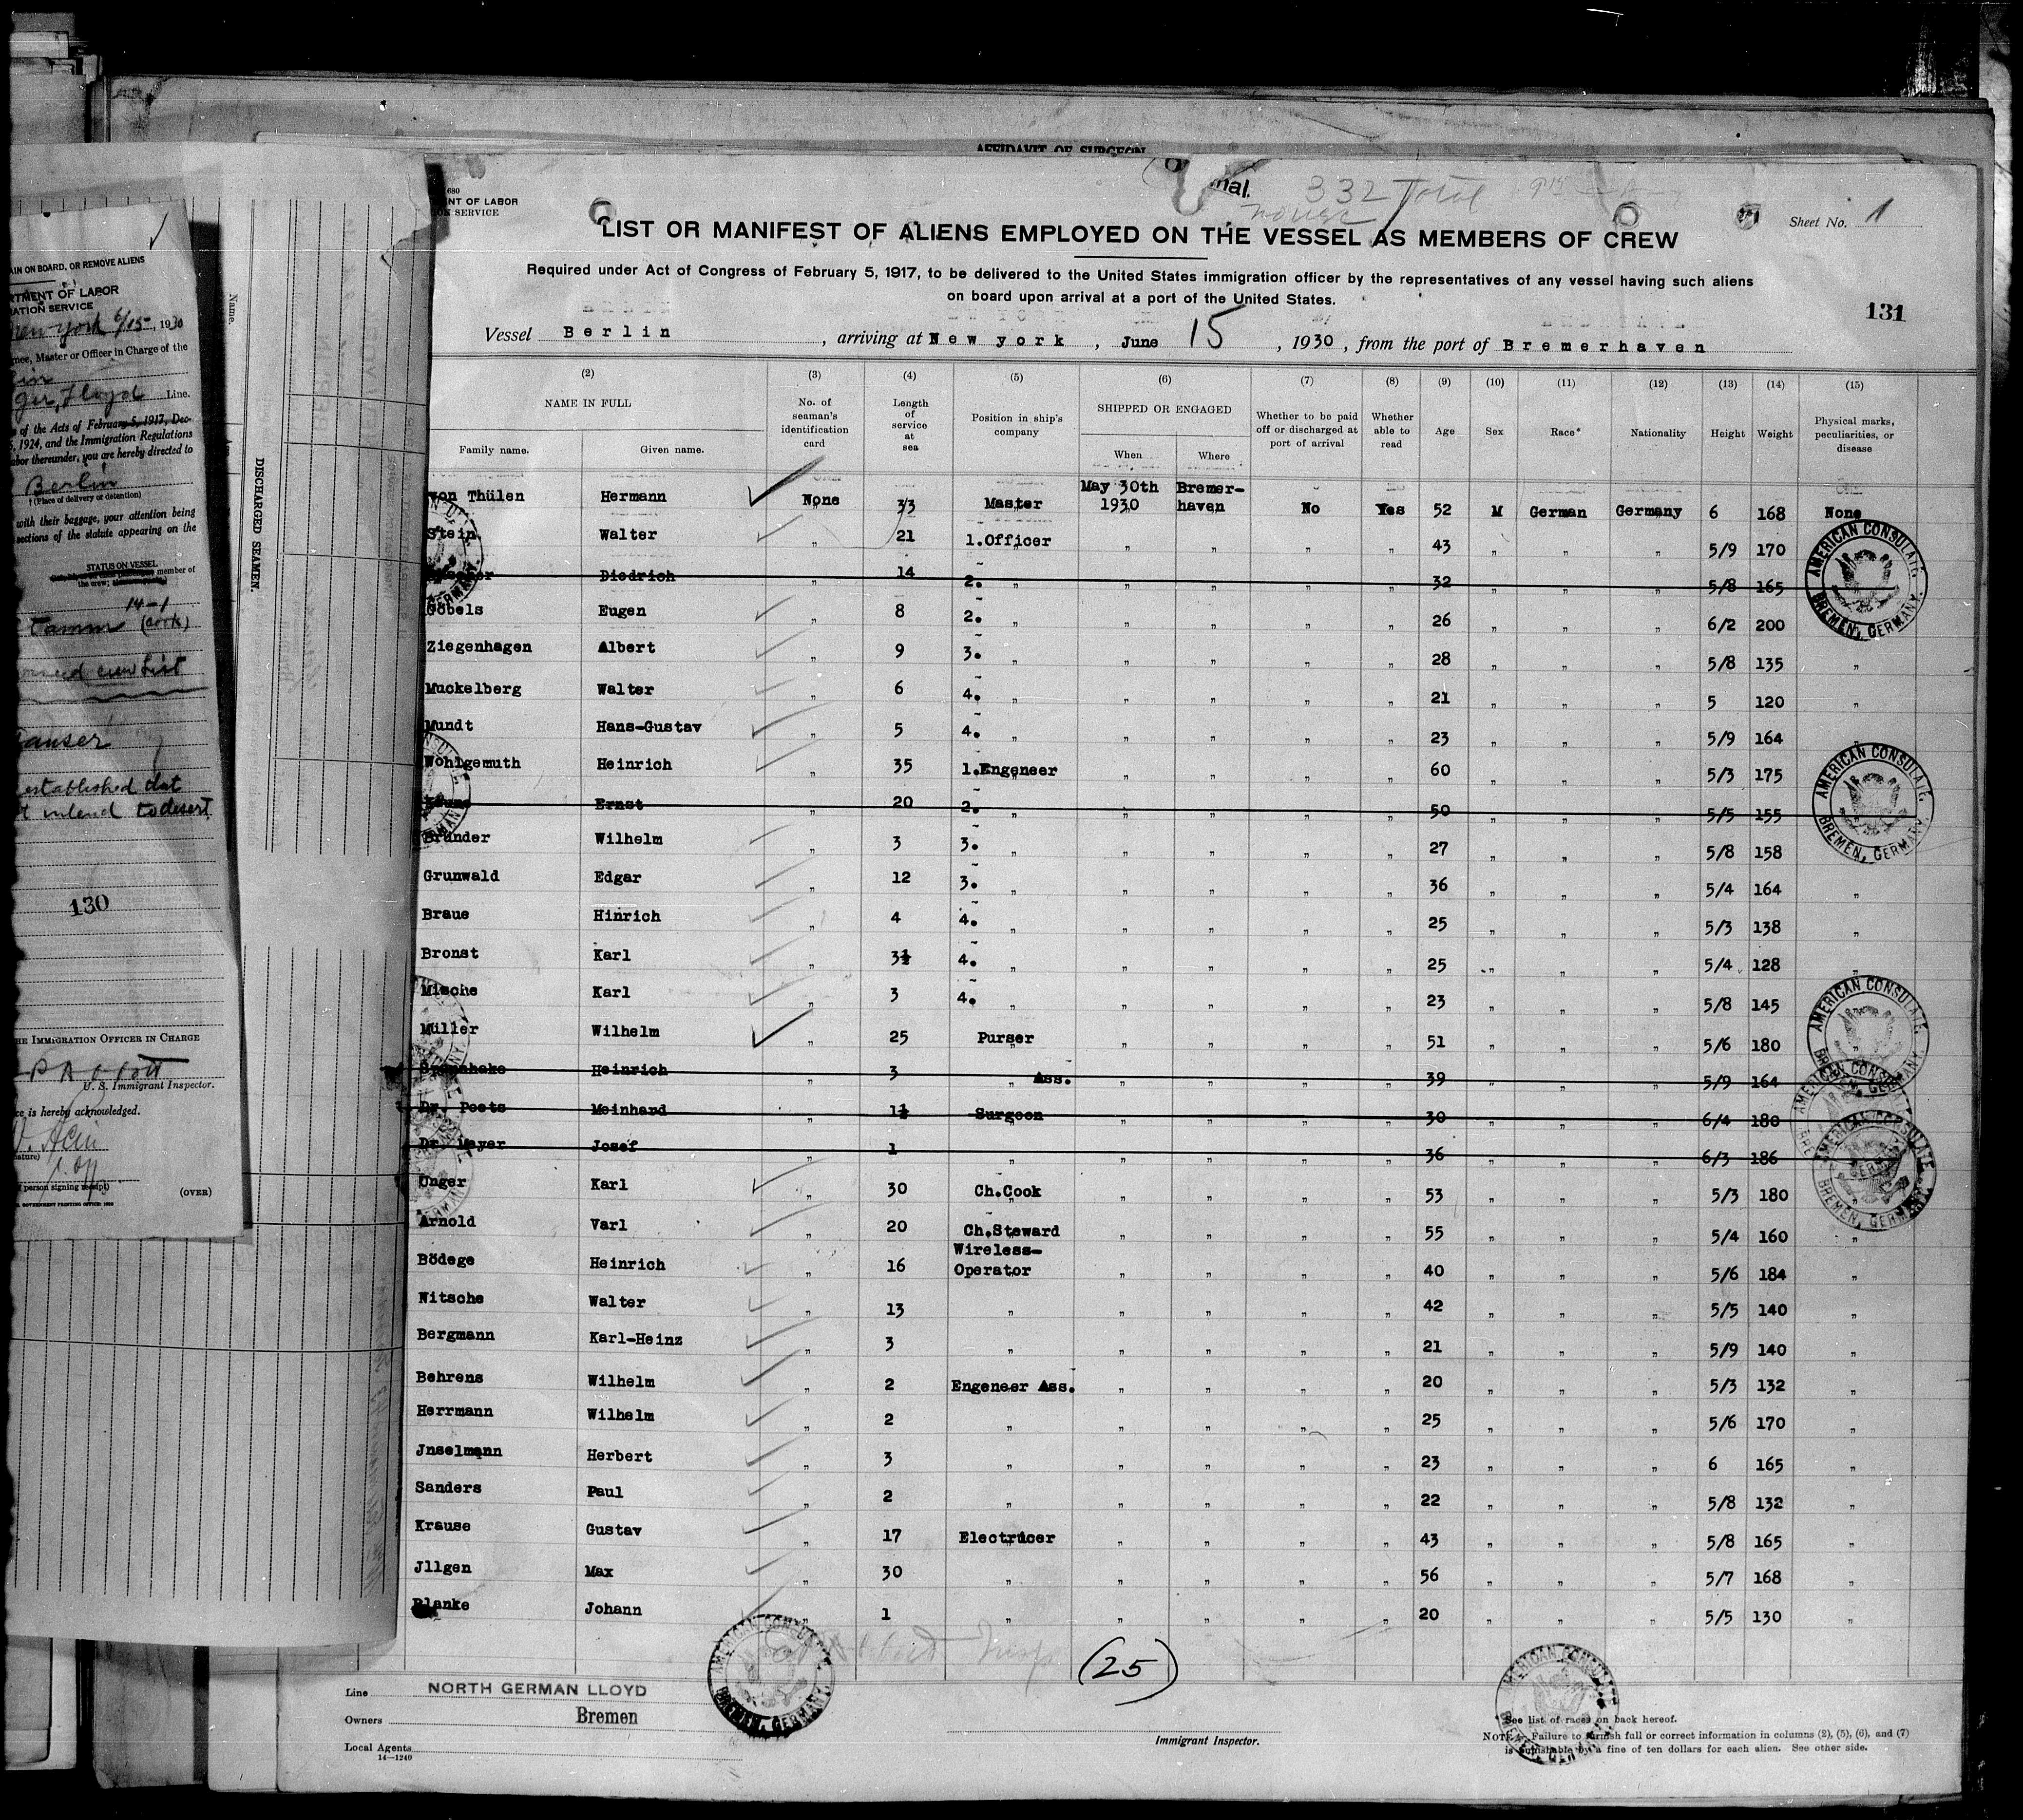 AFFIDAVIT OF SURGEON
680
ENT OF LABOR
ON SERVICE
nal.
332 Total
Sheet No. 1
LIST OR MANIFEST OF ALIENS EMPLOYED ON THE VESSEL AS MEMBERS OF CREW
Required under Act of Congress of February 5, 1917, to be delivered to the United States immigration officer by the representatives of any vessel having such aliens
on board upon arrival at a port of the United States.
131
Vessel Berlin, arriving at New york, June 15, 1930, from the port of Bremerhaven
(2) (3) (4) (5) (6) (7) (8) (9) (10) (11) (12) (13) (14) (15)
NAME IN FULL No. of seaman's identification card Length of service at sea Position in ship's company SHIPPED OR ENGAGED Whether to be paid off or discharged at port of arrival Whether able to read Age Sex Race* Nationality Height Weight Physical marks, peculiarities, or disease
Family name. Given name. When Where
von Thülen Hermann None 33 Master May 30th 1930 Bremer-haven No Yes 52 M German Germany 6 168 None
Stein Walter „ 21 1.Officer „ „ „ „ 43 „ „ „ 5/9 170
Diedrich „ 14 2. „ „ „ „ „ 32 „ „ „ 5/8 165
Göbels Eugen „ 8 2. „ „ „ „ „ 26 „ „ „ 6/2 200
Ziegenhagen Albert „ 9 3. „ „ „ „ „ 28 „ „ „ 5/8 135 „
Muckelberg Walter „ 6 4. „ „ „ „ „ 21 „ „ „ 5 120 „
Mundt Hans-Gustav „ 5 4. „ „ „ „ „ 23 „ „ „ 5/9 164 „
Wohlgemuth Heinrich „ 35 1.Engeneer „ „ „ „ 60 „ „ „ 5/3 175
Ernst „ 20 2. „ „ „ „ „ 50 „ „ „ 5/5 155
Gründer Wilhelm „ 3 3. „ „ „ „ „ 27 „ „ „ 5/8 158
Grunwald Edgar „ 12 3. „ „ „ „ „ 36 „ „ „ 5/4 164 „
Braue Hinrich „ 4 4. „ „ „ „ „ 25 „ „ „ 5/3 138 „
Bronst Karl „ 3½ 4. „ „ „ „ „ 25 „ „ „ 5/4 128 „
Mische Karl „ 3 4. „ „ „ „ „ 23 „ „ „ 5/8 145
Müller Wilhelm „ 25 Purser „ „ „ „ 51 „ „ „ 5/6 180 „
Heinrich „ 3 „ Ass. „ „ „ „ 39 „ „ „ 5/9 164
Dr. Poets Meinhard „ 1½ Surgeon „ „ „ „ 30 „ „ „ 6/4 180
Dr. Meyer Josef „ 1 „ „ „ „ „ 36 „ „ „ 6/3 186
Unger Karl „ 30 Ch.Cook „ „ „ „ 53 „ „ „ 5/3 180
Arnold Varl „ 20 Ch.Steward „ „ „ „ 55 „ „ „ 5/4 160 „
Bödege Heinrich „ 16 Wireless-Operator „ „ „ „ 40 „ „ „ 5/6 184 „
Nitsche Walter „ 13 „ „ „ „ „ 42 „ „ „ 5/5 140 „
Bergmann Karl-Heinz „ 3 „ „ „ „ „ 21 „ „ „ 5/9 140 „
Behrens Wilhelm „ 2 Engeneer Ass. „ „ „ „ 20 „ „ „ 5/3 132 „
Herrmann Wilhelm „ 2 „ „ „ „ „ 25 „ „ „ 5/6 170 „
Jnselmann Herbert „ 3 „ „ „ „ „ 23 „ „ „ 6 165 „
Sanders Paul „ 2 „ „ „ „ „ 22 „ „ „ 5/8 132 „
Krause Gustav „ 17 Electricer „ „ „ „ 43 „ „ „ 5/8 165 „
Jllgen Max „ 30 „ „ „ „ „ 56 „ „ „ 5/7 168 „
Blanke Johann „ 1 „ „ „ „ „ 20 „ „ „ 5/5 130 „
(25)
Line NORTH GERMAN LLOYD
Owners Bremen
Local Agents
14-1240
Immigrant Inspector.
* See list of races on back hereof.
NOTE.—Failure to furnish full or correct information in columns (2), (5), (6), and (7)
is punishable by a fine of ten dollars for each alien. See other side.
AMERICAN CONSULATE
BREMEN, GERMANY.
AMERICAN CONSULATE
BREMEN, GERMANY.
AMERICAN CONSULATE
BREMEN, GERMANY.
AMERICAN CONSULATE
BREMEN, GERMANY.
AMERICAN CONSULATE
BREMEN, GERMANY.
Name.
DISCHARGED SEAMEN.
AIN ON BOARD, OR REMOVE ALIENS
RTMENT OF LABOR
RATION SERVICE
New York 6/15, 1930
nee, Master or Officer in Charge of the
lin
ger, Lloyd Line.
s of the Acts of February 5, 1917, Dec-
6, 1924, and the Immigration Regulations
abor thereunder, you are hereby directed to
Berlin
† (Place of delivery or detention)
with their baggage, your attention being
sections of the statute appearing on the
STATUS ON VESSEL
member of
the crew;
14-1
Tamm (cook)
crew List
established that
t intend to desert
130
HE IMMIGRATION OFFICER IN CHARGE
U. S. Immigrant Inspector.
ce is hereby acknowledged.
nature)
1. off
f person signing receipt)
(OVER)
. GOVERNMENT PRINTING OFFICE: